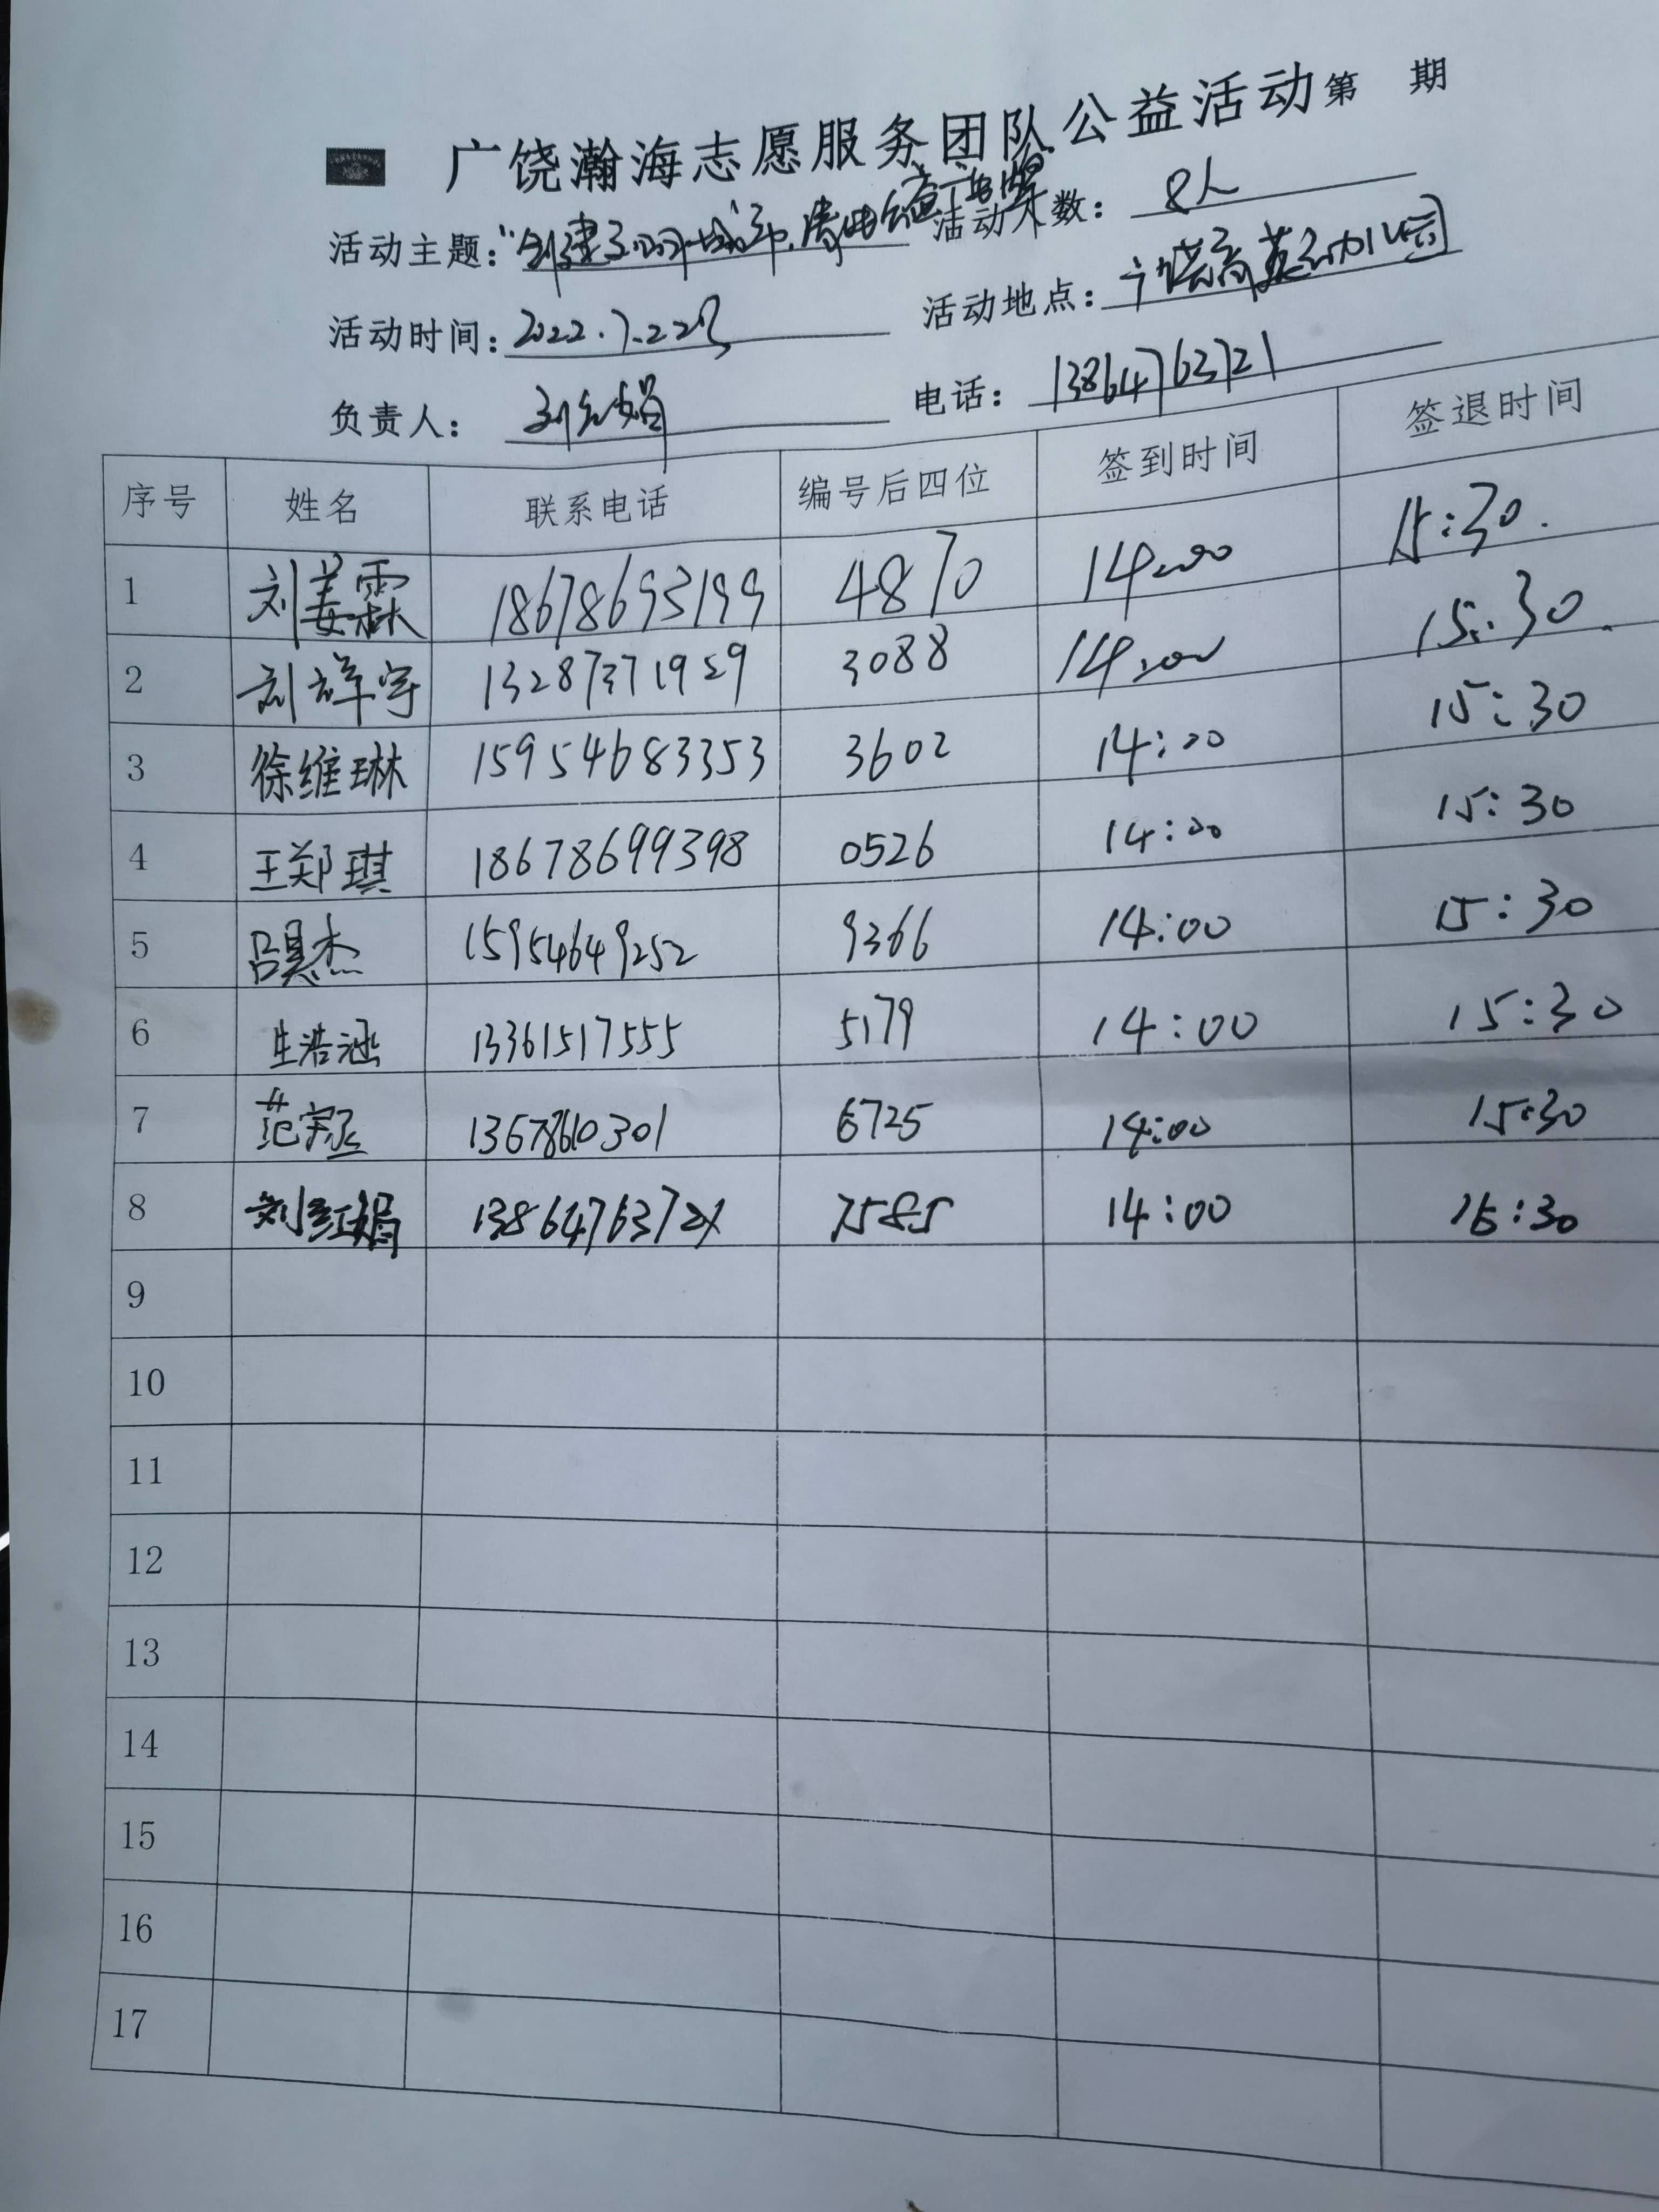 广饶瀚海志愿服务团队公益活动第 期
活动主题：“创建 城市, 公益 活动人数： 8人
活动时间：2022.7.22日 活动地点：广饶 英 幼儿园
负责人： 刘红娟 电话： 13864763721
序号 姓名 联系电话 编号后四位 签到时间 签退时间
1 刘姜霖 18678693199 4870 14:00 15:30.
2 刘祥宇 13287371929 3088 14:00 15:30.
3 徐维琳 15954683353 3602 14:00 15:30
4 王郑琪 18678699398 0526 14:00 15:30
5 吕昊杰 15954649252 9366 14:00 15:30
6 生浩涵 13361517555 5179 14:00 15:30
7 范 13678610301 6725 14:00 15:30
8 刘红娟 13864763721 7585 14:00 15:30
9
10
11
12
13
14
15
16
17